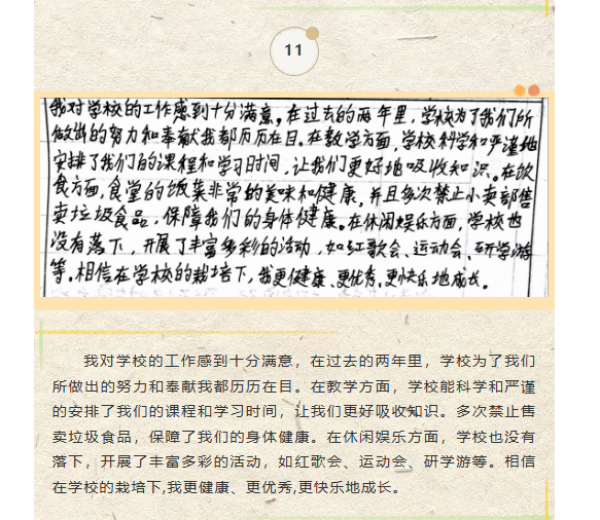 11
我对学校的工作感到十分满意。在过去的两年里，学校为了我们所
做出的努力和奉献我都历历在目。在教学方面，学校科学和严谨地
安排了我们的课程和学习时间，让我们更好地吸收知识。在饮
食方面，食堂的饭菜非常的美味和健康，并且多次禁止小卖部售
卖垃圾食品，保障我们的身体健康。在休闲娱乐方面，学校也
没有落下，开展了丰富多彩的活动，如红歌会、运动会、研学游
等。相信在学校的栽培下，我更健康、更优秀，更快乐地成长。
我对学校的工作感到十分满意，在过去的两年里，学校为了我们
所做出的努力和奉献我都历历在目。在教学方面，学校能科学和严谨
的安排了我们的课程和学习时间，让我们更好吸收知识。多次禁止售
卖垃圾食品，保障了我们的身体健康。在休闲娱乐方面，学校也没有
落下，开展了丰富多彩的活动，如红歌会、运动会、研学游等。相信
在学校的栽培下,我更健康、更优秀,更快乐地成长。